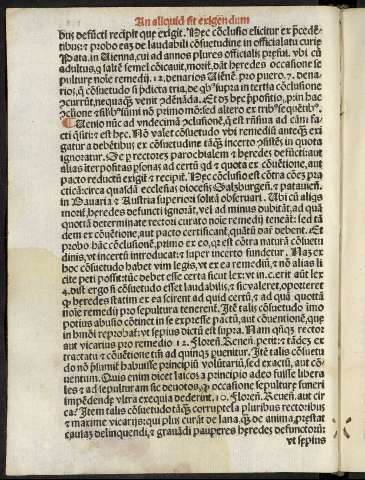 An aliquid sit exigendum
bus defūcti recipit que exigit. Hec cōclusio elicitur ex p̄cedē-
tibus: ꝛ probo eas de laudabili cōsuetudine in officialatu curie
Pata. in Vienna, cui ad annos plures officialis prefui. vbi cū
adultus, ꝙ saltē semel cōicant, morit̄. dāt heredes occasione se
pulture noīe remedij. 12. denarios Viēnē. pro puero. 7. dena-
rios,
ꝯcurrūt,
Venio nūc ad vndecimā ꝯclusionē,
cti ꝗsiti: ꝛ est hec. Nō valet cōsuetudo vbi remediū anteqꝫ exi
gatur a debētibus ex cōsuetudine tāqꝫ incerto in quota
ignoratur. De ꝙ rectores parochialem ꝛ heredes defūcti: aut
alias interpositas psonas ad certū ꝙd ꝛ quota ex cōuētione, aut
pacto reductū exigit ꝛ recipit. Hec cōclusio est cōtra cōem pra
cticā: circa quasdā ecclesias diocesis Salzburgeñ. ꝛ patauieñ.
in Bauaria ꝛ Austria superiori solitā obseruari. Vbi cū aliqs
morit̄, heredes defuncti ignorāt, vel ad minus dubitāt, ad quā
quotā determinate rectori curato noīe remedij teneāt: sed tā
dem ex cōuētione, aut pacto certificant, quātū dare debent. Et
probo hāc cōclusionē, primo ex eo, ꝙ est cōtra naturā cōsuetu
dinis, vt incertū introducat: ꝛ super incerto fundetur. Naꝫ ex
hoc cōsuetudo habet vim legis, vt ex ea remediū, ꝛ nō alias li
cite peti possit: tūc debet esse certa sicut lex: vt in. c. erit aūt lex
4. dist. ergo si cōsuetudo esset laudabilis, ꝛ sic valeret, oporteret
ꝙ heredes statim ex ea scirent ad quid certū, ꝛ ad quā quottā
noīe remedij pro sepultura tenerent̄. Itē talis cōsuetudo imo
potius abusio cōtinet in se expresse pactū, aut cōuentionē, que
in hmōi reprobat̄: vt sepius dictū est supra. Nam qn̄qꝫ rector
aut vicarius pro remedio 12. Floreñ. Reneñ. petit: ꝛ tādez ex
tractatu ꝛ cōuētione tn̄ ad quinqꝫ puenitur. Itē talis cōsuetu
do nō p̄sumit̄ habuisse principiū volūtariū, sed exactiū, aut cō-
uentum. Quis enim dicet laicos a principio adeo fuisse libera
les ꝛ ad sepulturam sic deuotos, ꝙ occasione sepulture funeri
impēdende vltra exequia dederint. 10. Floreñ. Reneñ. aut cir
ca? Item talis cōsuetudo tāqꝫ corruptela pluribus rectoribus
ꝛ maxime vicarijs: qui plus curāt de lana, qꝫ de anima, prestat
causaꝫ delinquendi, ꝛ grauādi pauperes heredes defunctorū:
vt sepius